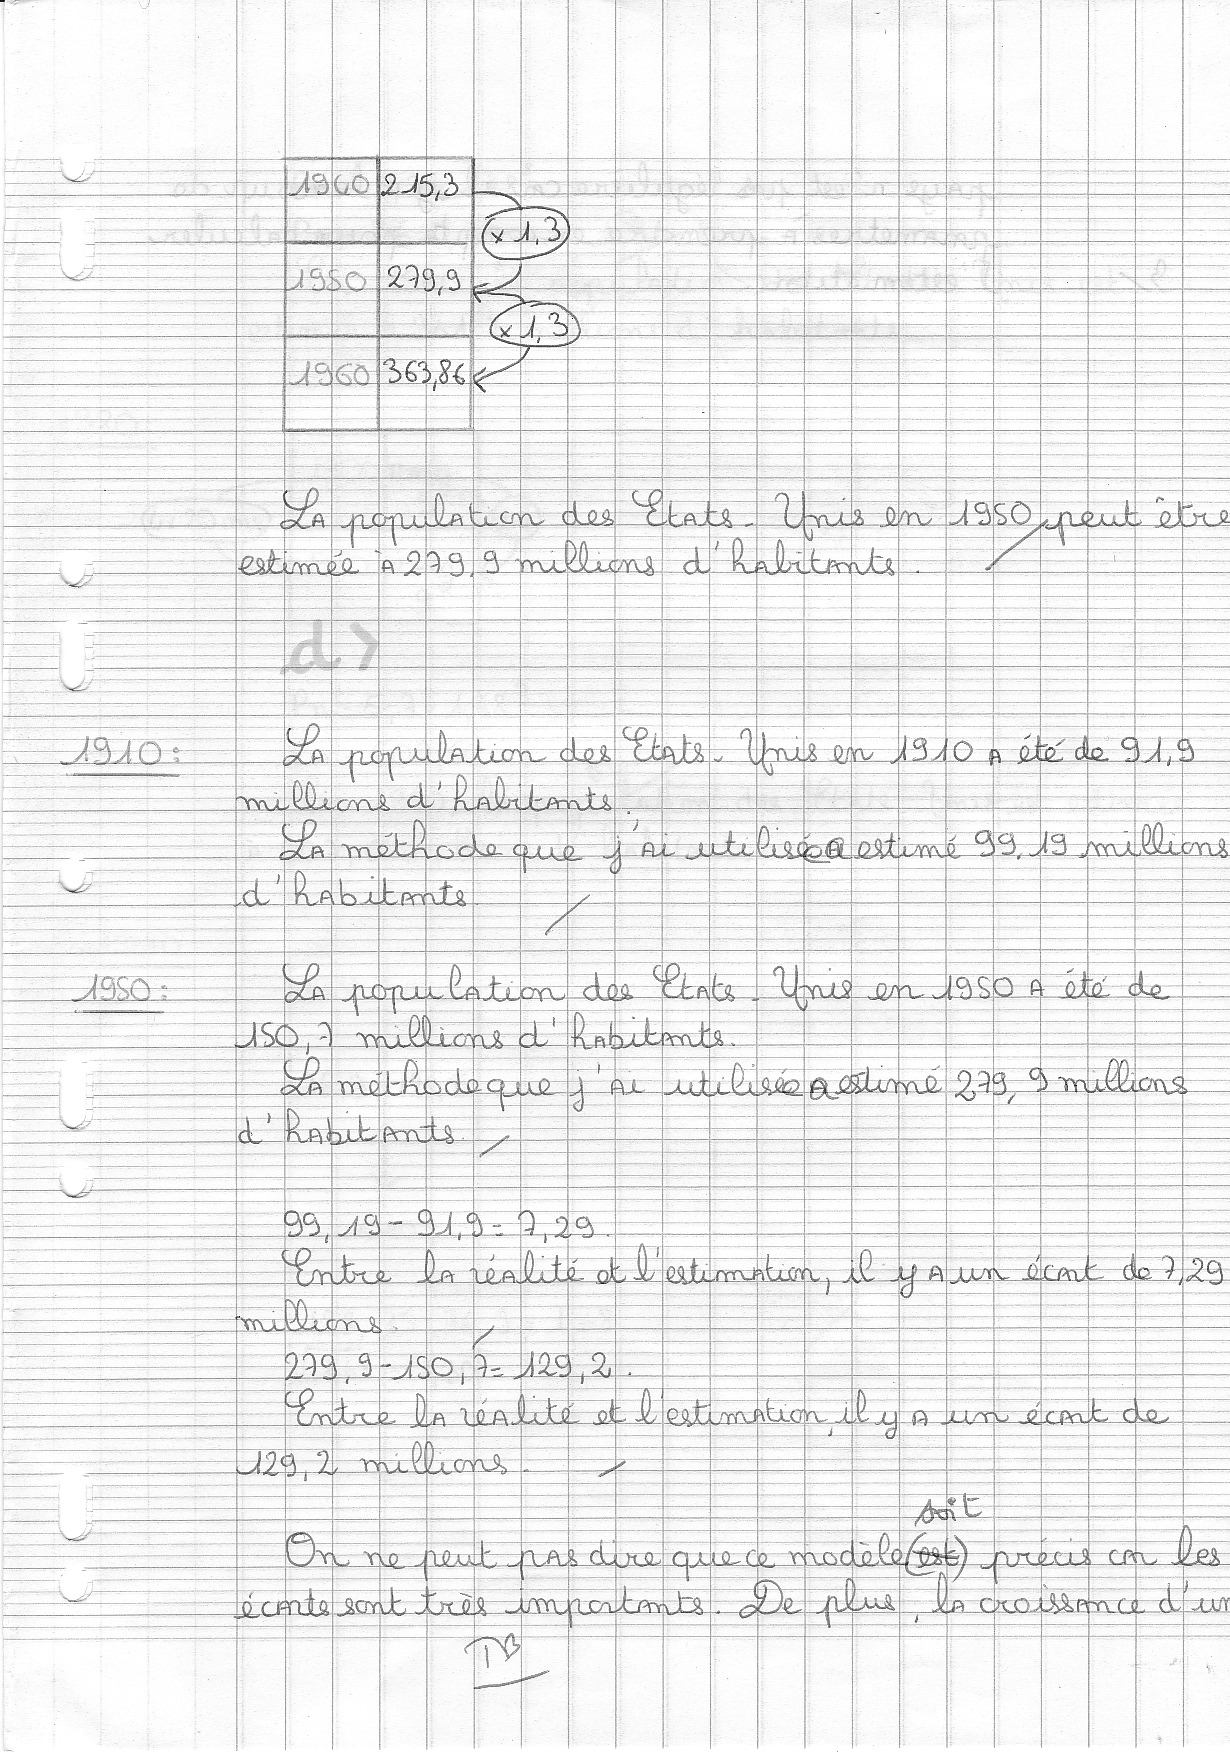 1940 215,3
× 1,3
1950 279,9
× 1,3
1960 363,86
La population des Etats-Unis en 1950 peut être
estimée à 279,9 millions d'habitants.
d>
1910: La population des Etats-Unis en 1910 a été de 91,9
millions d'habitants.
La méthode que j'ai utilisée a estimé 99,19 millions
d'habitants.
1950: La population des Etats-Unis en 1950 a été de
150,7 millions d'habitants.
La méthode que j'ai utilisée a estimé 279,9 millions
d'habitants.
99,19 - 91,9 = 7,29.
Entre la réalité et l'estimation, il y a un écart de 7,29
millions.
279,9 - 150,7 = 129,2.
Entre la réalité et l'estimation, il y a un écart de
129,2 millions.
soit
On ne peut pas dire que ce modèle (est) précis car les
écarts sont très importants. De plus, la croissance d'un
TB